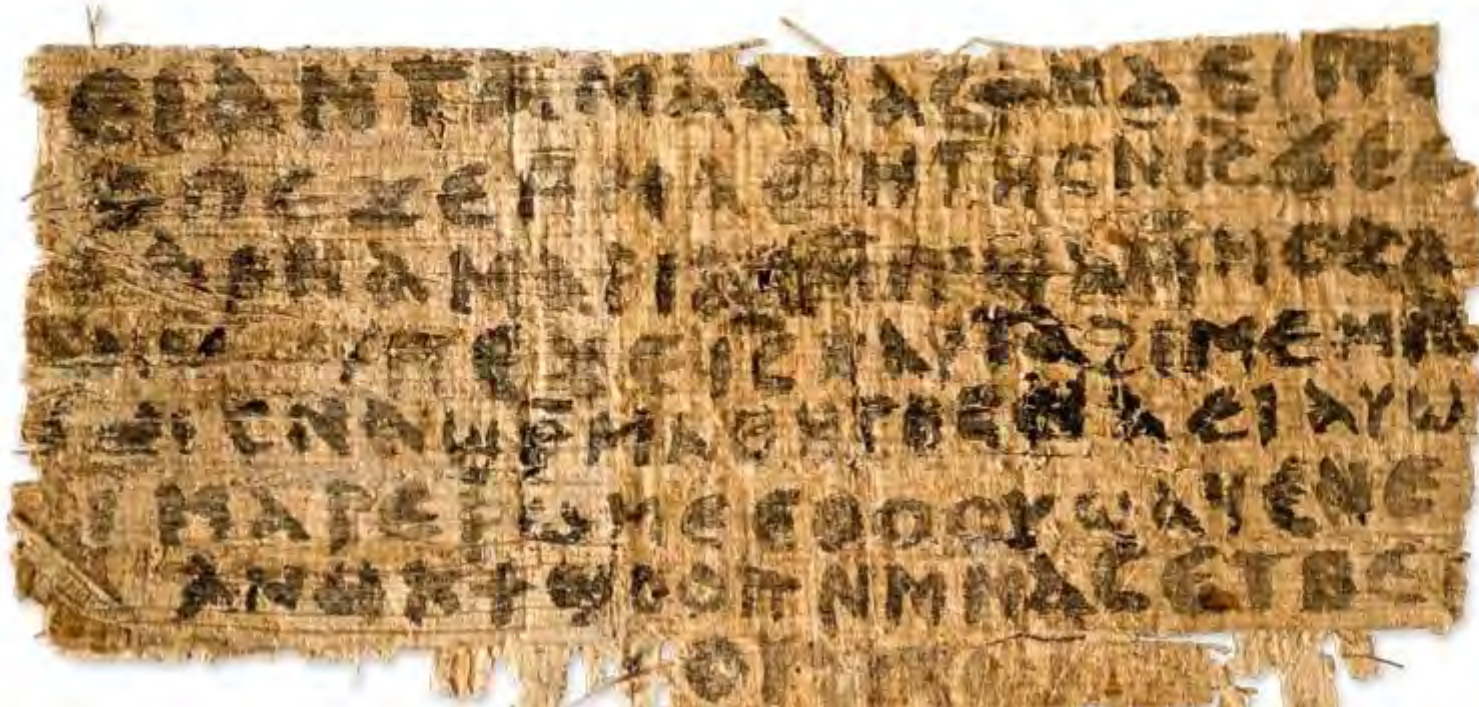 ⲉⲓ ⲁⲛ ⲧⲁⲙⲁⲁⲩ ⲁⲥϯ ⲛⲁⲉⲓ ⲡ
ⲡⲉϫⲉ ⲙⲙⲁⲑⲏⲧⲏⲥ ⲛⲓⲥ ϫⲉ ⲥ
ⲁⲣⲛⲁ ⲙⲁⲣⲓⲁⲙ
ⲡⲉϫⲉ ⲓⲥ ⲛⲁⲩ ⲧⲁϩⲓⲙⲉ ⲙⲛ
ⲥⲛⲁϣⲣⲙⲁⲑⲏⲧⲏⲥ ⲛⲁⲉⲓ ⲁⲩⲱ
ⲓ ⲙⲁⲣⲉⲣⲱⲙⲉ ⲉⲑⲟⲟⲩ ϣⲁϥⲉ ⲛⲉ
ⲁⲛⲟⲕ ϯϣⲟⲟⲡ ⲛⲙⲙⲁⲥ ⲉⲧⲃⲉ